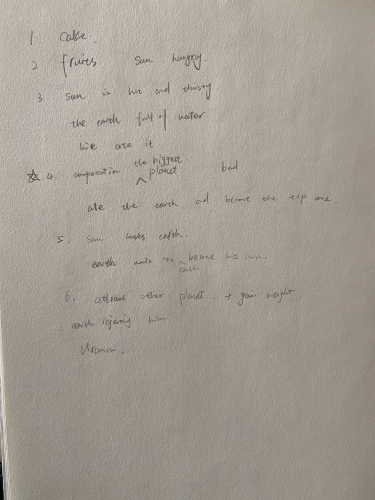 1 Cake.
2 fruits sun hungry.
3. sun is hot and thirsty
the earth full of water
He ate it
☆ 4. the biggest planet bad
ate the earth and became the top one.
5. Sun loves earth.
earth wants to
6. attract other planet + gain weight
earth rejecting him